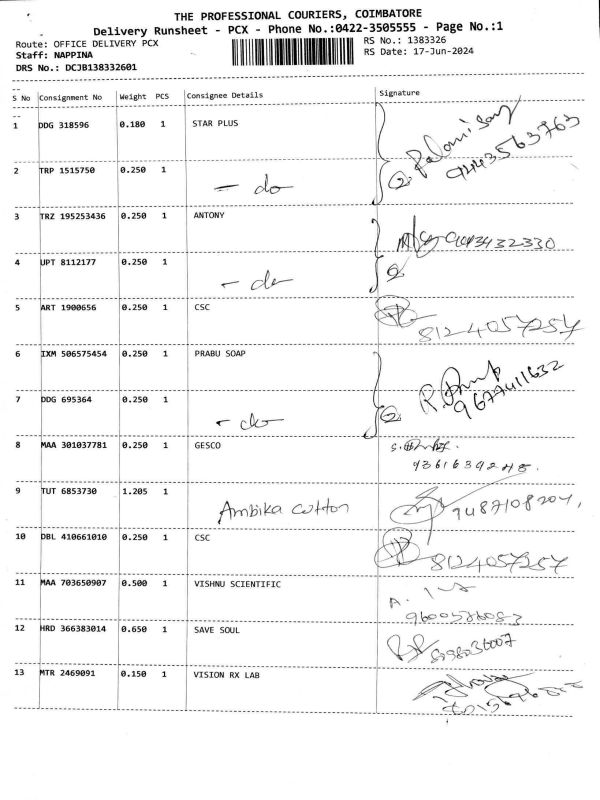 THE PROFESSIONAL COURIERS, COIMBATORE
Delivery Runsheet - PCX - Phone No.:0422-3505555 - Page No.:1
Route: OFFICE DELIVERY PCX RS No.: 1383326
Staff: NAPPINA RS Date: 17-Jun-2024
DRS No.: DCJB138332601
S No Consignment No Weight PCS Consignee Details Signature
1 DDG 318596 0.180 1 STAR PLUS
9443563763
2 TRP 1515750 0.250 1 - do 2
3 TRZ 195253436 0.250 1 ANTONY
4 UPT 8112177 0.250 1 - do 2
5 ART 1900656 0.250 1 CSC
8124057257
6 IXM 506575454 0.250 1 PRABU SOAP
9677411632
7 DDG 695364 0.250 1 - do 2
8 MAA 301037781 0.250 1 GESCO
9 TUT 6853730 1.205 1 Ambika cotton 9487108204,
10 DBL 410661010 0.250 1 CSC
8124057257
11 MAA 703650907 0.500 1 VISHNU SCIENTIFIC
12 HRD 366383014 0.650 1 SAVE SOUL
13 MTR 2469091 0.150 1 VISION RX LAB